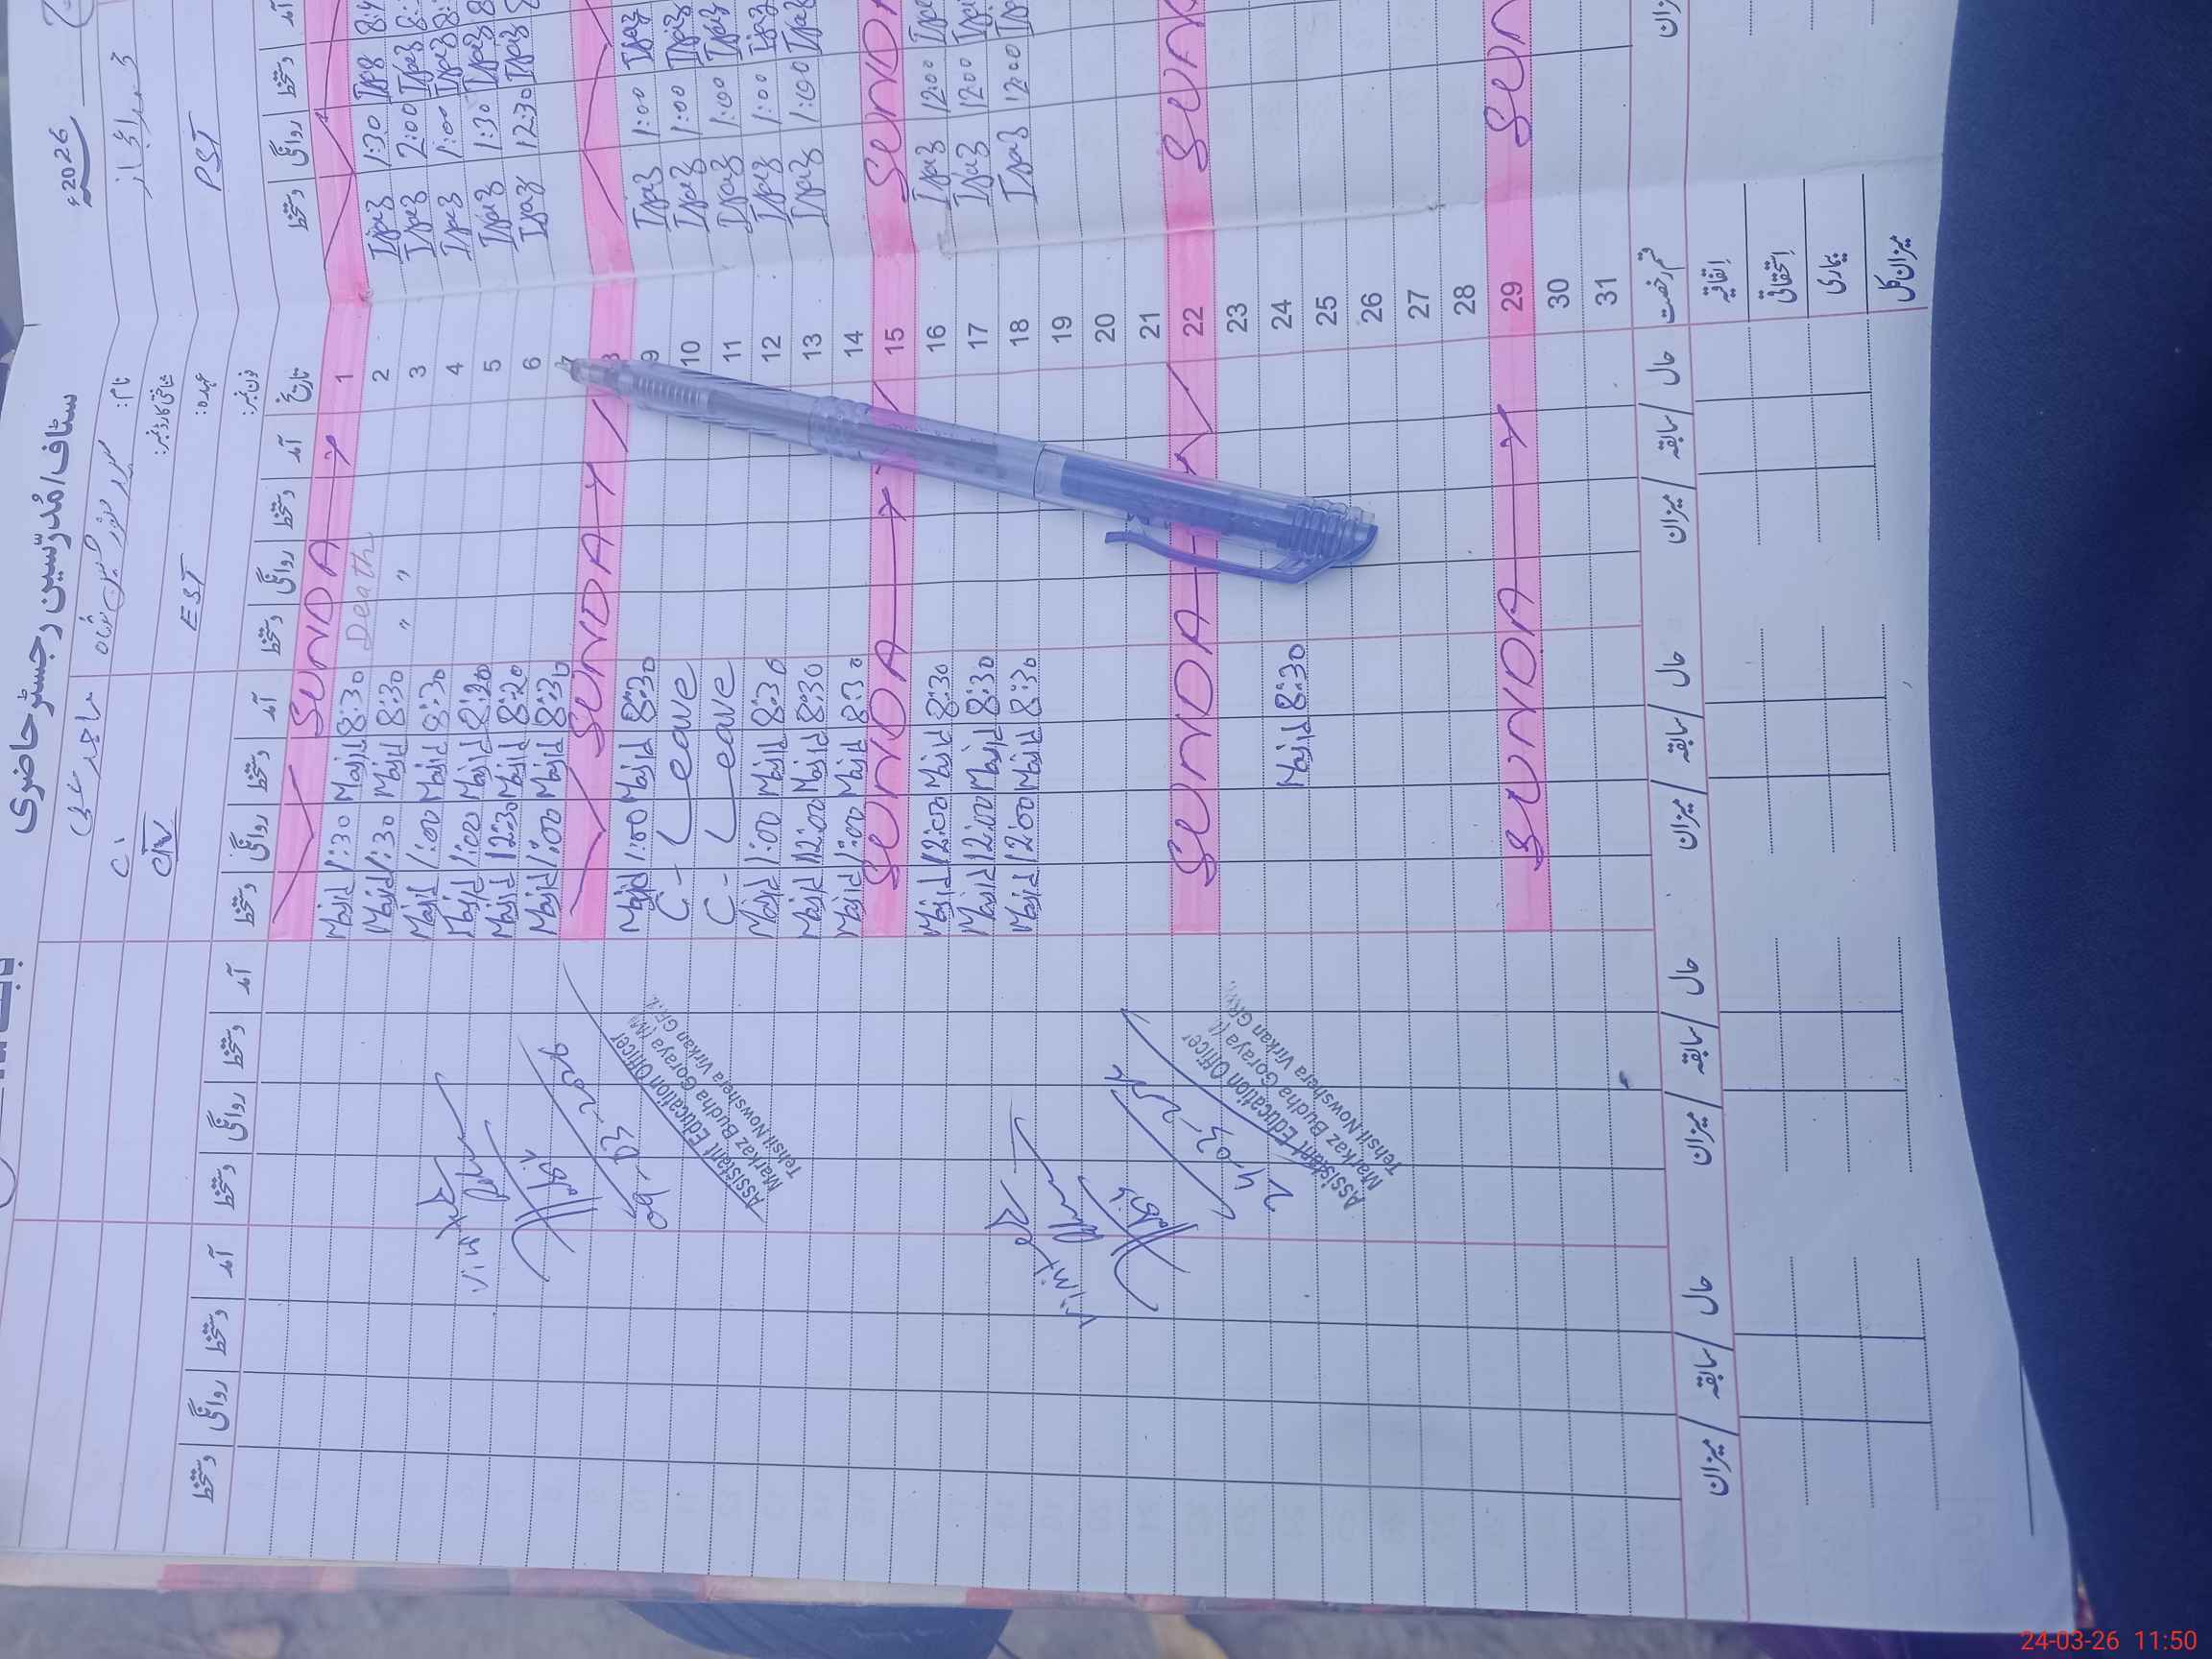 سٹاف/مُدرّسین رجسٹر حاضری
2026ء
نام:
شناختی کارڈ نمبر:
عہدہ:
فون نمبر:
ماجد علی
PST
EST
تاریخ آمد دستخط روانگی دستخط آمد دستخط روانگی دستخط آمد دستخط روانگی دستخط آمد دستخط روانگی دستخط
1 SUNDAY
2 Ijaz 1:30 Ijaz Death 8:30 Majid 1:30 Majid
3 Ijaz 2:00 Ijaz " " 8:30 Majid 1:30 Majid
4 Ijaz 1:00 Ijaz 8:30 Majid 1:00 Majid
5 Ijaz 1:30 Ijaz 8:20 Majid 1:00 Majid
6 Ijaz 12:30 Ijaz 8:20 Majid 12:30 Majid
8:30 Majid 1:00 Majid
8 SUNDAY
9 Ijaz 1:00 Ijaz 8:30 Majid 1:00 Majid
10 Ijaz 1:00 Ijaz C- Leave
11 Ijaz 1:00 Ijaz C- Leave
12 Ijaz 1:00 Ijaz 8:30 Majid 1:00 Majid
13 Ijaz 1:00 Ijaz 8:30 Majid 12:00 Majid
14 8:30 Majid 1:00 Majid
15 SUNDA
16 Ijaz 12:00 Ijaz 8:30 Majid 12:00 Majid
17 Ijaz 12:00 Ijaz 8:30 Majid 12:00 Majid
18 Ijaz 12:00 8:30 Majid 12:00 Majid
19
20
21
22 SUNDA
23
24 8:30 Majid
25
26
27
28
29 SUNDA
30
31
قسم رخصت حال / سابقہ / میزان حال / سابقہ / میزان حال / سابقہ / میزان حال / سابقہ / میزان
اتفاقیہ
استحقاقی
بیماری
میزان کل
09-03-2026
Assistant Education Officer
Markaz Budha Goraya
Tehsil Nowshera Virkan
24-03-26
Assistant Education Officer
Markaz Budha Goraya
Tehsil Nowshera Virkan
24-03-26 11:50